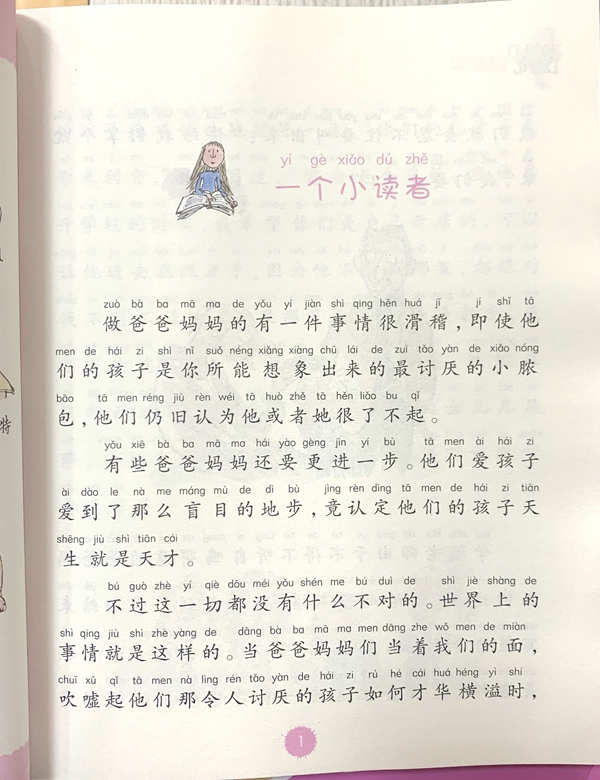 yí gè xiǎo dú zhě
一个小读者
zuò bà ba mā ma de yǒu yí jiàn shì qing hěn huá jī jí shǐ tā
做爸爸妈妈的有一件事情很滑稽，即使他
men de hái zi shì nǐ suǒ néng xiǎng xiàng chū lái de zuì tǎo yàn de xiǎo nóng
们的孩子是你所能想象出来的最讨厌的小脓
bāo tā men réng jiù rèn wéi tā huò zhě tā hěn liǎo bu qǐ
包，他们仍旧认为他或者她很了不起。
yǒu xiē bà ba mā ma hái yào gèng jìn yí bù tā men ài hái zi
有些爸爸妈妈还要更进一步。他们爱孩子
ài dào le nà me máng mù de dì bù jìng rèn dìng tā men de hái zi tiān
爱到了那么盲目的地步，竟认定他们的孩子天
shēng jiù shì tiān cái
生就是天才。
bú guò zhè yí qiè dōu méi yǒu shén me bú duì de shì jiè shàng de
不过这一切都没有什么不对的。世界上的
shì qing jiù shì zhè yàng de dāng bà ba mā ma men dāng zhe wǒ men de miàn
事情就是这样的。当爸爸妈妈们当着我们的面，
chuī xū qǐ tā men nà lìng rén tǎo yàn de hái zi rú hé cái huá héng yì shí
吹嘘起他们那令人讨厌的孩子如何才华横溢时，
1
特